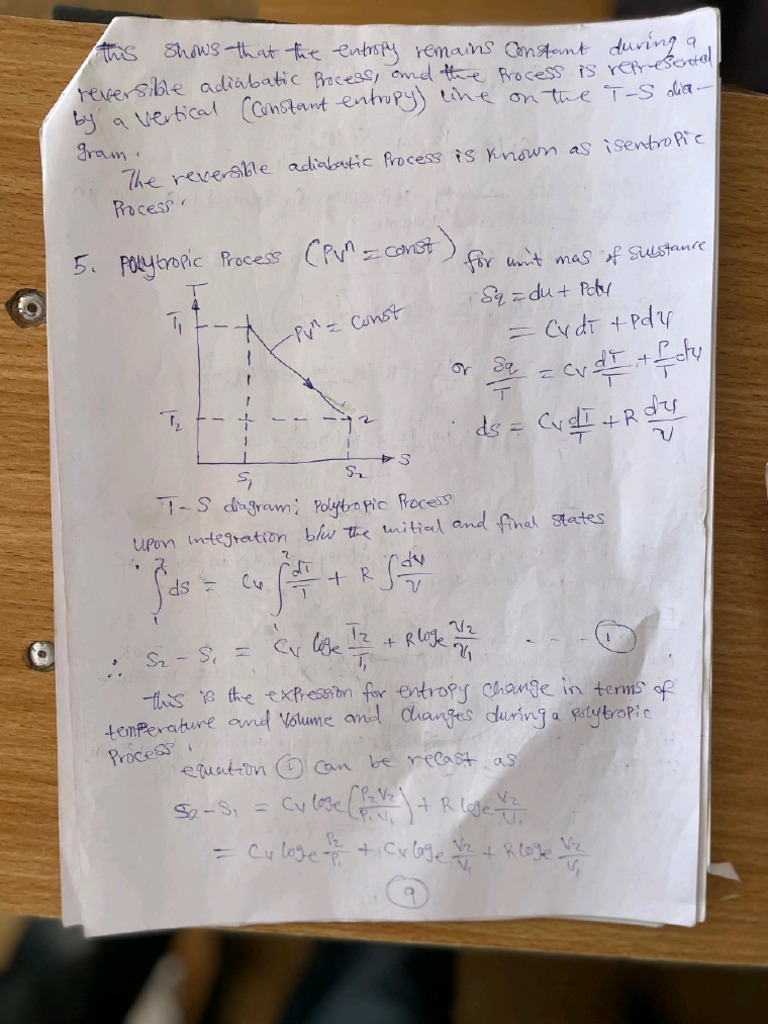 This shows that the entropy remains constant during a
reversible adiabatic Process, and the Process is represented
by a vertical (Constant entropy) line on the T-S dia-
gram.
The reversible adiabatic Process is known as isentropic
Process.
5. Polytropic Process (PVⁿ = const) for unit mas of substance
T
T₁
PVⁿ = Const
T₂
2
S₁
S₂
S
δq = du + Pdv
= Cv dT + Pdv
or δq/T = Cv dT/T + P/T dv
ds = Cv dT/T + R dv/v
T-S diagram; Polytropic Process
upon integration b/w the initial and final states
∫₁² ds = Cv ∫₁² dT/T + R ∫ dv/v
∴ S₂ - S₁ = Cv loge T₂/T₁ + R loge V₂/V₁ - - - ①
This is the expression for entropy change in terms of
temperature and Volume and changes during a Polytropic
Process.
equation ① can be recast as
S₂ - S₁ = Cv loge (P₂V₂/P₁V₁) + R loge V₂/V₁
= Cv loge P₂/P₁ + Cv loge V₂/V₁ + R loge V₂/V₁
9